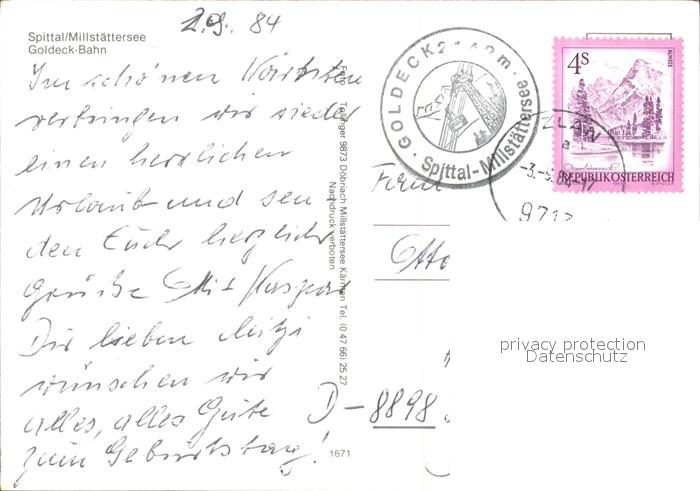 2.9.84
Spittal/Millstättersee
Goldeck-Bahn
Im schönen Kärnten
verbringen wir wieder
einen herrlichen
Urlaub und sen
den Euch herzliche
Grüße
Dir lieben Mitzi
wünschen wir
alles, alles Gute
zum Geburtstag!
Tollinger 9873 Döbriach Millstättersee Kärnten Tel. (0 47 66) 25 27
Nachdruck verboten
1671
GOLDECK 2142 m
Spittal-Millstättersee
4S
ALMSEE
REPUBLIK ÖSTERREICH
-3.-9.84-17
a
971
Fam
Otto
D-8898
privacy protection
Datenschutz